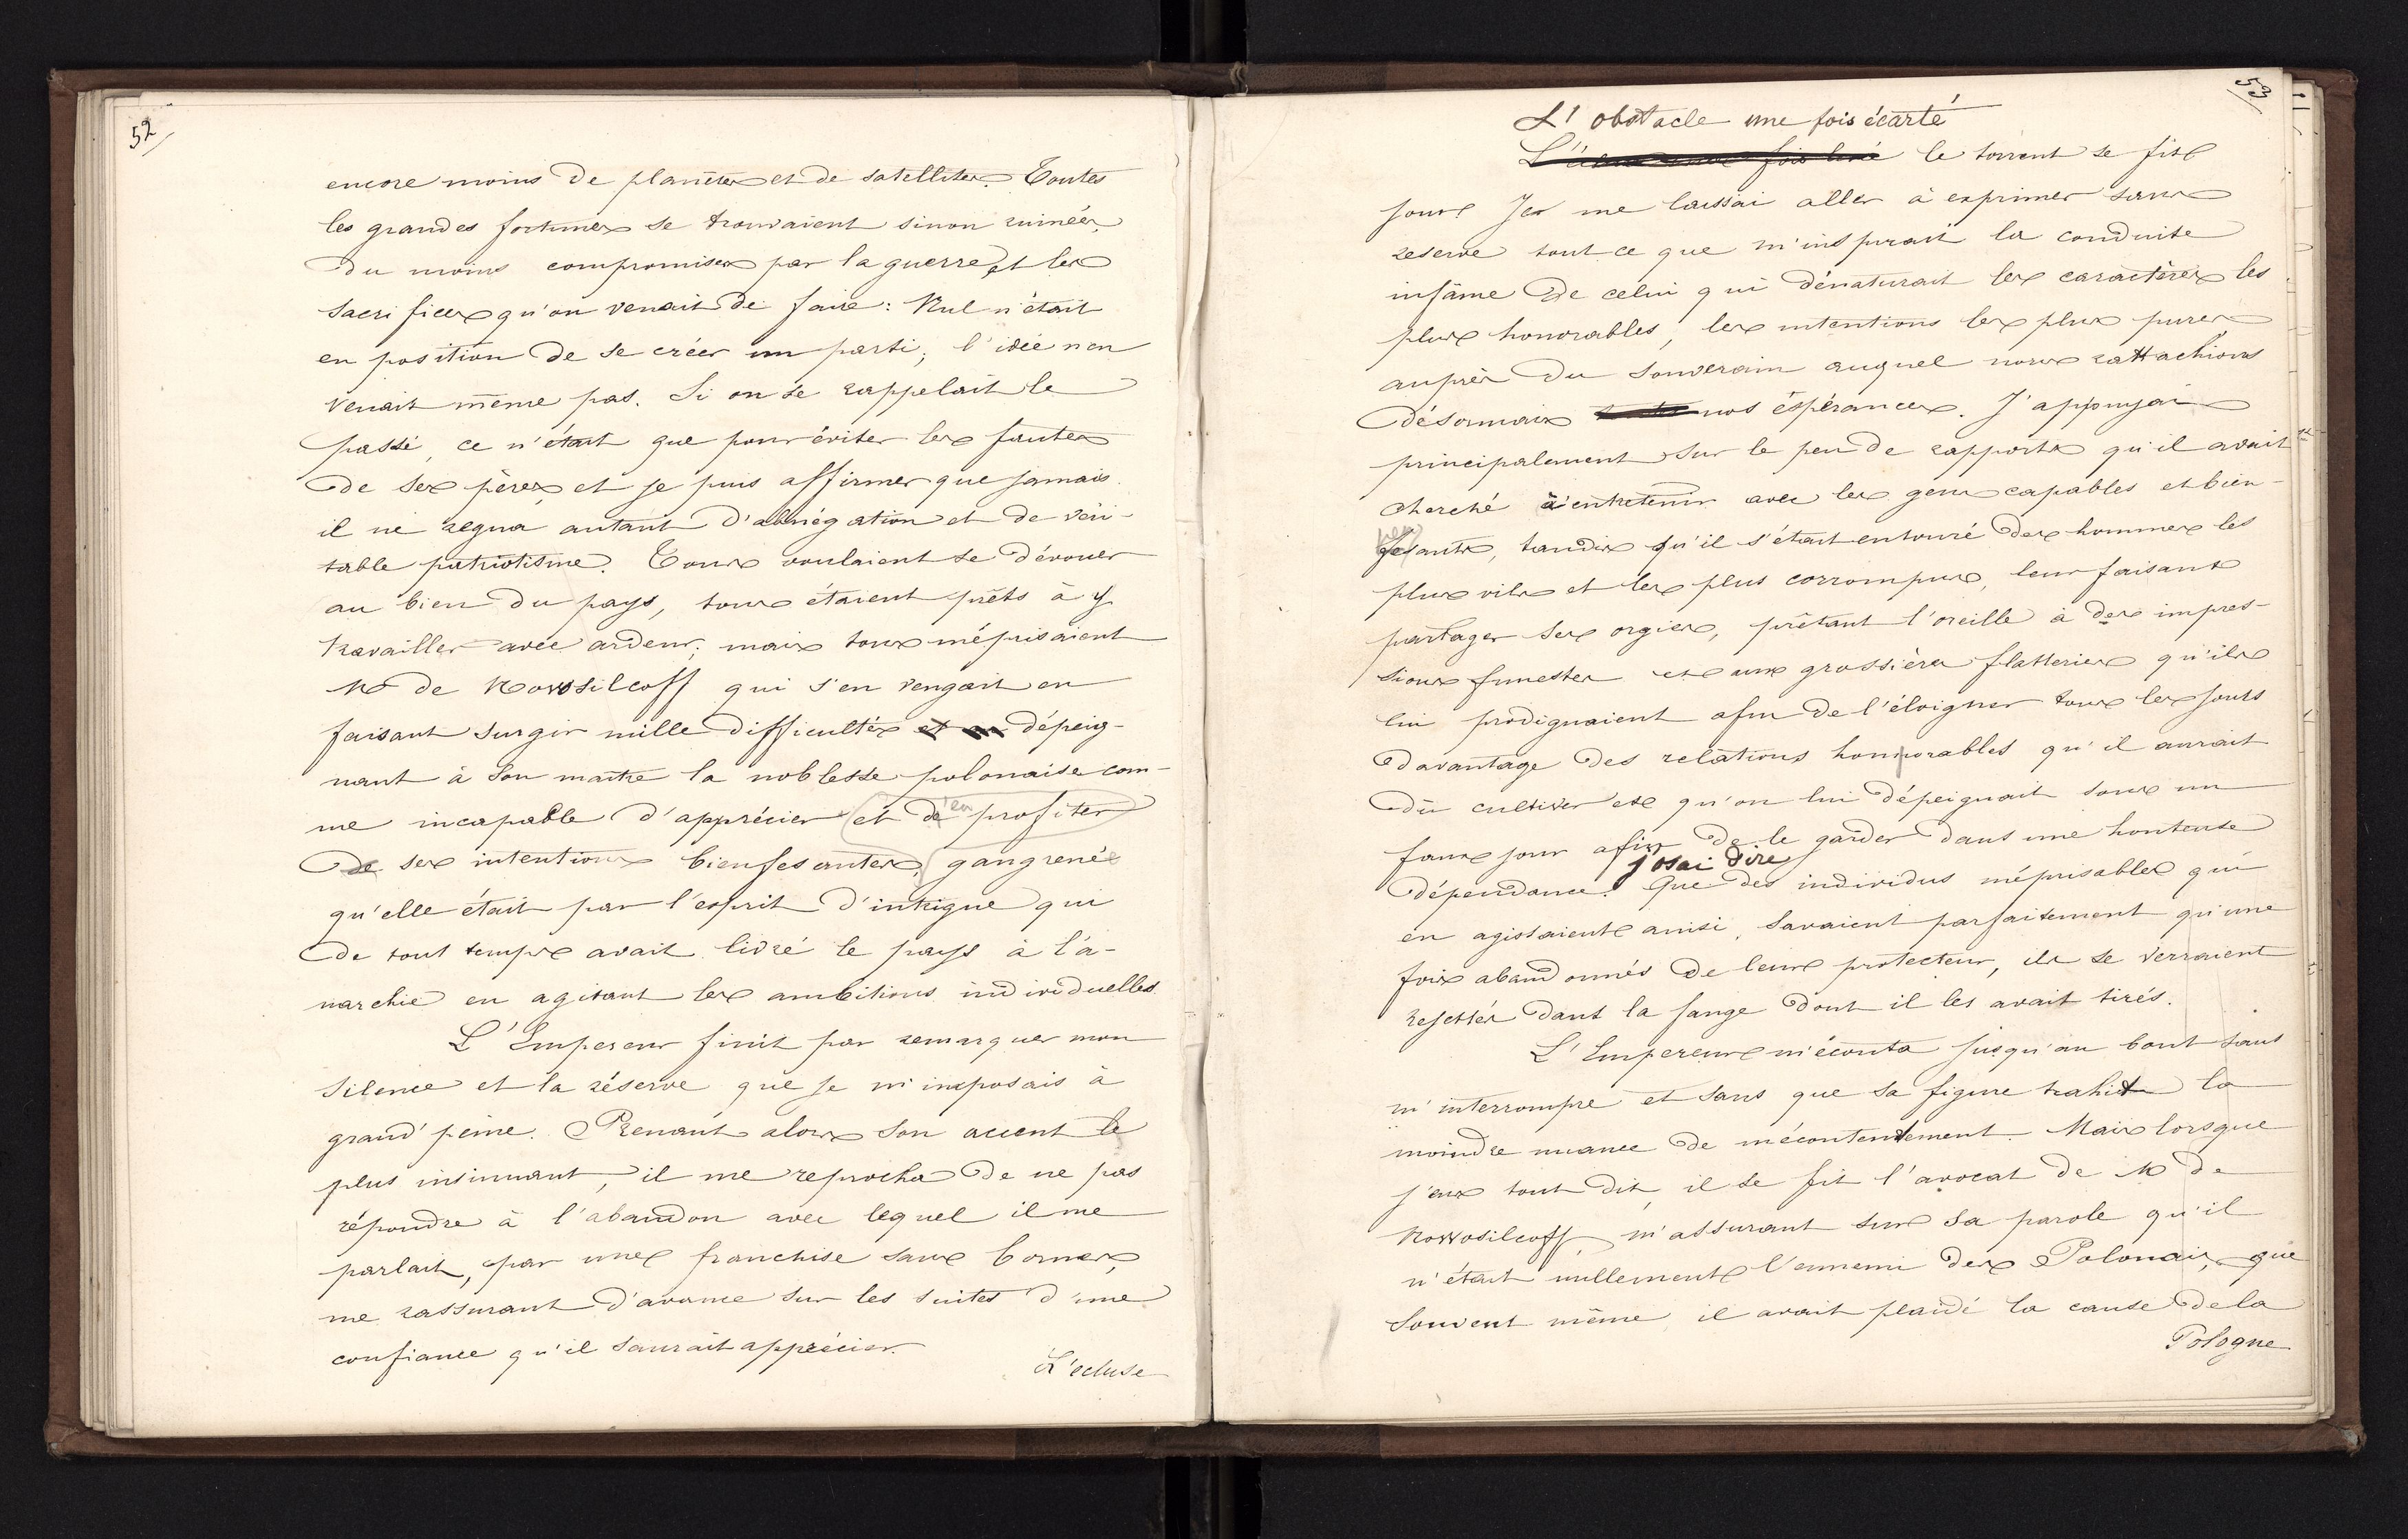 52
encore moins de planètes et de satellites. Toutes
les grandes fortunes se trouvaient sinon ruinées,
du moins compromises par la guerre et les
sacrifices qu'on venait de faire : Nul n'était
en position de se créer un parti, l'idée n'en
venait même pas. Si on se rappelait le
passé, ce n'était que pour éviter les fautes
de ses pères, et je puis affirmer que jamais
il ne regna autant d'abnégation et de véri-
table patriotisme. Tous voulaient se dévouer
au bien du pays, tous étaient prêts à y
travailler avec ardeur; mais tous méprisaient
Mr de Nowosilcoff qui s'en vengait en
faisant surgir mille difficultés et en dépeig-
nant à son maître la noblesse polonaise com-
me incapable d'apprécier et d'en profiter
de ses intentions bienfesantes, gangrenée
qu'elle était par l'esprit d'intrigue qui
de tout temps avait livré le pays à l'a-
narchie en agitant les ambitions individuelles.
L'Empereur finit par remarquer mon
silence et la réserve que je m'imposais à
grand'peine. Prenant alors son accent le
plus insinuant, il me reprocha de ne pas
répondre à l'abandon avec lequel il me
parlait, par une franchise sans bornes,
me rassurant d'avance sur les suites d'une
confiance qu'il saurait apprécier.
L'écluse
53
L'obstacle une fois écarté
L'écluse une fois levée le torrent se fit
jour. Je me laissai aller à exprimer sans
reserve tout ce que m'inspirait la conduite
infâme de celui qui dénaturait les caractères les
plus honorables, les intentions les plus pures
auprès du souverain auquel nous rattachions
désormais nos éspérances. J'appuyai
principalement sur le peu de rapports qu'il avait
cherché à entretenir avec les gens capables et bien-
fesants, tandis qu'il s'était entouré des hommes les
plus vils et les plus corrompus, leur faisant
partager ses orgies, prêtant l'oreille à des impres-
sions funestes et aux grossières flatteries qu'ils
lui prodiguaient afin de l'éloigner tous les jours
davantage des relations honnorables qu'il aurait
dû cultiver et qu'on lui dépeignait sous un
faux jour afin de le garder dans une honteuse
dépendance. j'osai dire Que des individus méprisables qui
en agissaient ainsi, savaient parfaitement qu'une
fois abandonnés de leur protecteur, ils se verraient
rejettés dans la fange dont il les avait tirés.
L'Empereur m'écouta jusqu'au bout sans
m'interrompre et sans que sa figure trahit la
moindre nuance de mécontentement. Mais lorsque
j'eus tout dit, il se fit l'avocat de Mr de
Nowosilcoff, m'assurant sur sa parole qu'il
n'était nullement l'ennemi des Polonais, que
souvent même, il avait plaidé la cause de la
Pologne